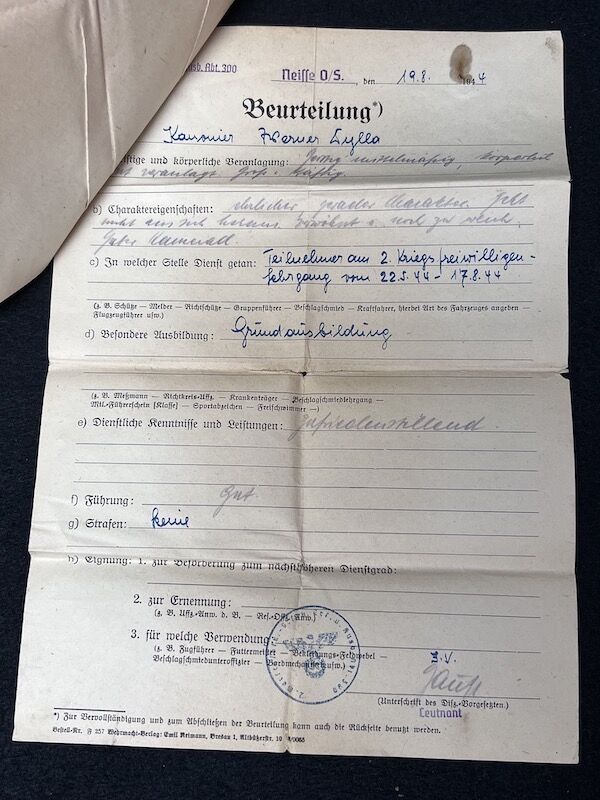 sb. Abt. 300 Neisse O/S., den 19.8. 1944
Beurteilung*)
Kanonier Werner Cylla
stige und körperliche Veranlagung: Geistig mittelmäßig, körperlich
veranlagt. Groß u. kräftig.
b) Charaktereigenschaften: ehrlicher gerader Charakter. Geht
nicht aus sich heraus. u. noch zu weich.
Guter Kamerad
c) In welcher Stelle Dienst getan: Teilnehmer am 2. Kriegsfreiwilligen-
lehrgang vom 22.5.44 - 17.8.44
(z. B. Schütze — Melder — Richtschütze — Gruppenführer — Beschlagschmied — Kraftfahrer, hierbei Art des Fahrzeuges angeben —
Flugzeugführer usw.)
d) Besondere Ausbildung: Grundausbildung
(z. B. Meßmann — Richtkreis-Uffz. — Krankenträger — Beschlagschmiedlehrgang —
Mil.-Führerschein [Klasse] — Sportabzeichen — Freischwimmer —)
e) Dienstliche Kenntnisse und Leistungen: Zufriedenstellend.
f) Führung: Gut.
g) Strafen: keine
h) Eignung: 1. zur Beförderung zum nächsthöheren Dienstgrad:
2. zur Ernennung:
(z. B. Uffz.-Anw. d. B. — Res.-Offz.-Anw.)
3. für welche Verwendung:
(z. B. Zugführer — Futtermeister — Bekleidungs-Feldwebel —
Beschlagschmiedunteroffizier — Bordmechaniker usw.)
I.V.
(Unterschrift des Disz.-Vorgesetzten.)
Leutnant
*) Zur Vervollständigung und zum Abschließen der Beurteilung kann auch die Rückseite benutzt werden.
Bestell-Nr. F 257 Wehrmacht-Verlag: Emil Reimann, Breslau 1, Altbüßerstr. 10